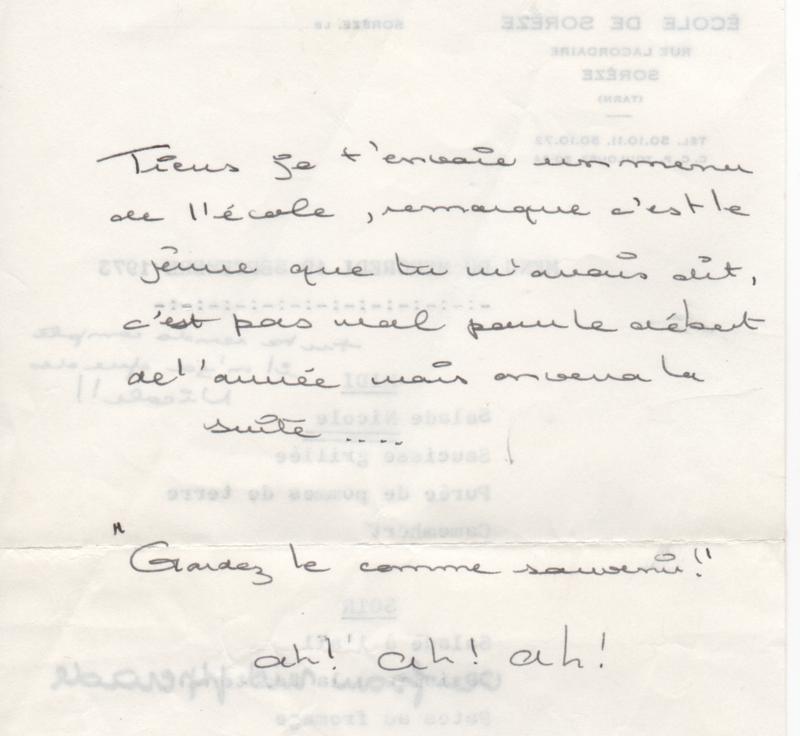 ÉCOLE DE SORÈZE
SORÈZE, LE
RUE LACORDAIRE
SORÈZE
(TARN)
TÉL. 50.10.11, 50.10.72
Tiens je t'envoie un menu
de l'école, remarque c'est le
jeûne que tu m'avais dit,
c'est pas mal pour le début
de l'année mais on vera la
suite ....
"Gardez le comme souvenir!!"
ah! ah! ah!
MENU DU
1973
MIDI
Salade Nicole
Saucisse grillée
Purée de pommes de terre
Camembert
SOIR
Salade à l'
Pates au fromage